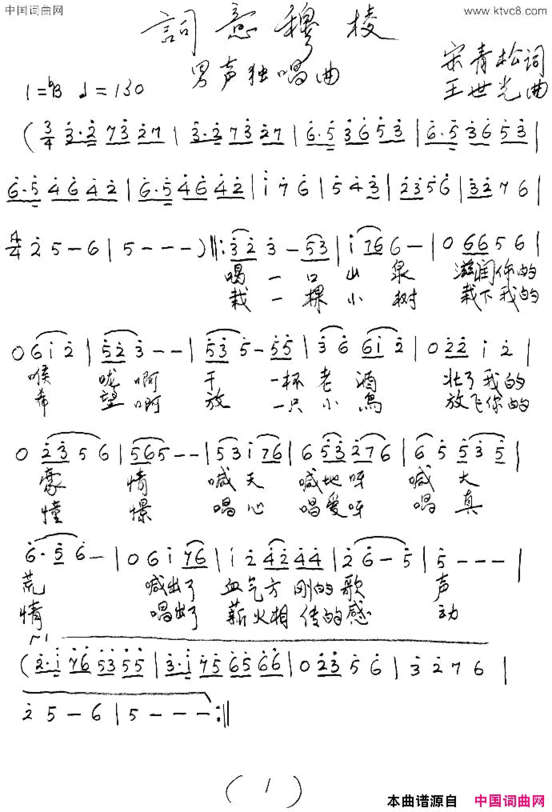 中国词曲网
www.ktvc8.com
詞意穆棱
男声独唱曲
宋青松词
王世光曲
1=♭B ♩=130
(3/4 3·2 7327 | 3·2 7327 | 6·5 3653 | 6·5 3653 |
6·5 4642 | 6·5 4642 | i 7 6 | 5 4 3 | 2356 | 32 7 6 |
4/4 2 5 - 6 | 5 - - - ) ‖: 32 3 - 53 | i 76 6 - | 0 66 5 6 |
喝一口山泉 滋润你的
栽一棵小树 栽下我的
0 6 i 2 | 52 3 - - | 53 5 - 55 | 3 6 6i 2 | 0 22 i 2 |
喉咙啊 干一杯老酒 壮了我的
希望啊 放一只小鸟 放飞你的
0 23 5 6 | 565 - - | 53 i 76 | 6 53 276 | 6 5 53 5 |
豪情 喊天 喊地呀 喊大
憧憬 唱心 唱爱呀 唱真
6·5 6 - | 0 6 i 76 | i 2 42 44 | 2 6 - 5 | 5 - - - |
荒 喊出了 血气方刚的歌声
情 唱出了 薪火相传的感动
(2·i 76 53 55 | 3·i 75 65 66 | 0 23 5 6 | 3 2 7 6 |
2 5 - 6 | 5 - - - :‖
(1)
本曲谱源自 中国词曲网